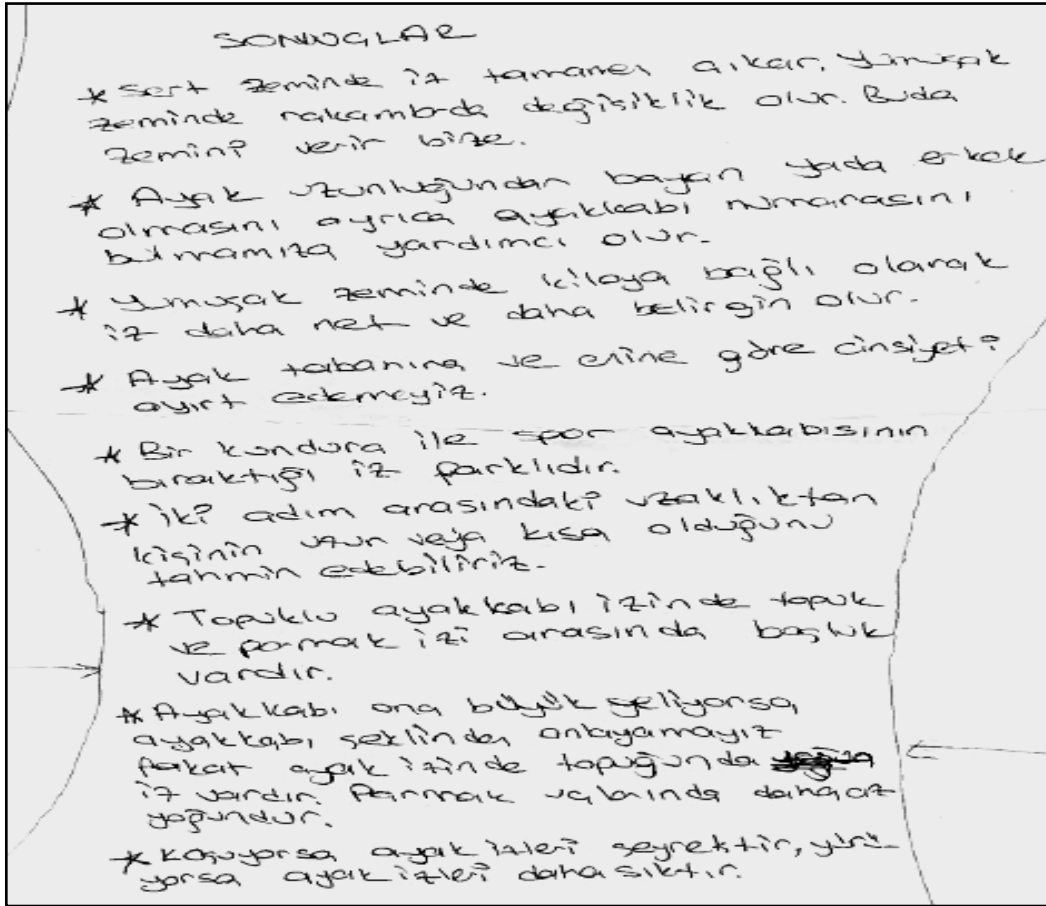 SONUÇLAR
* Sert zeminde iz tamamen çıkar. Yumuşak
zeminde rakamlarda değişiklik olur. Buda
zemini verir bize.
* Ayak uzunluğundan bayan yada erkek
olmasını ayrıca ayakkabı numarasını
bulmamıza yardımcı olur.
* Yumuşak zeminde kiloya bağlı olarak
iz daha net ve daha belirgin olur.
* Ayak tabanına ve enine göre cinsiyeti
ayırt edemeyiz.
* Bir kundura ile spor ayakkabısının
bıraktığı iz farklıdır.
* İki adım arasındaki uzaklıktan
kişinin uzun veya kısa olduğunu
tahmin edebiliriz.
* Topuklu ayakkabı izinde topuk
ve parmak izi arasında boşluk
vardır.
* Ayakkabı ona büyük geliyorsa,
ayakkabı şeklinde anlayamayız
fakat ayak izinde topuğunda
iz vardır. Parmak uçlarında daha az
yoğundur.
* Koşuyorsa ayak izleri seyrektir, yürü-
yorsa ayak izleri daha sıktır.